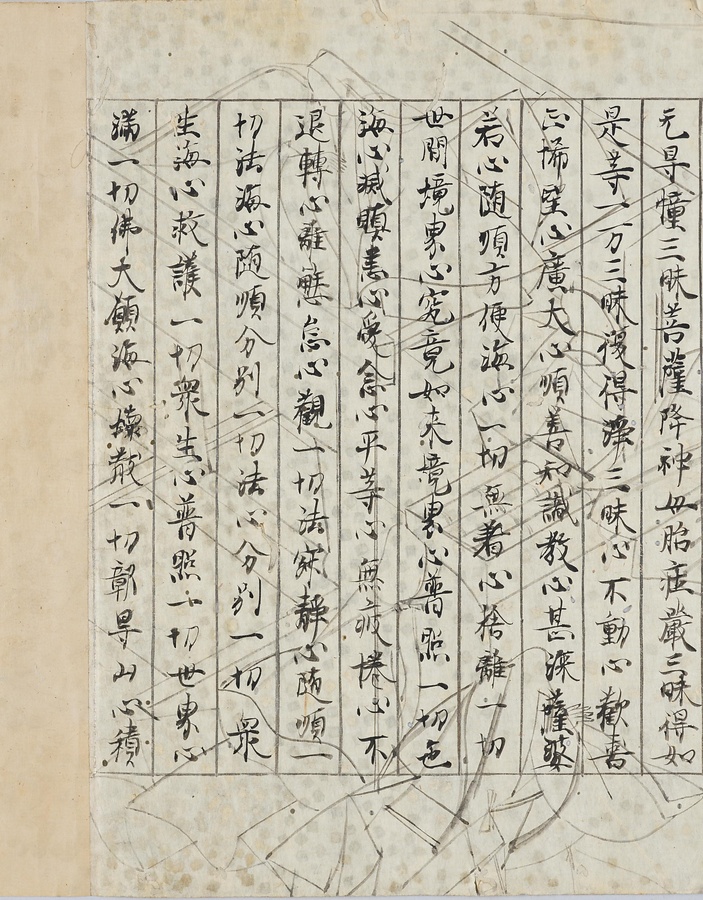 无㝵憧三昧菩薩降神母胎庄嚴三昧得如
是等一万三昧復得淨三昧心不動心歡喜
心悕望心廣大心順善知識教心甚深薩婆
若心随順方便海心一切無著心捨離一切
世間境界心究竟如来境界心普照一切色
海心滅瞋恚心愛念心平等心無疲惓心不
退轉心離懈怠心觀一切法寂靜心随順一
切法海心随順分別一切法心分別一切衆
生海心救護一切衆生心普照一切世界心
滿一切佛大願海心壊散一切彰㝵山心積